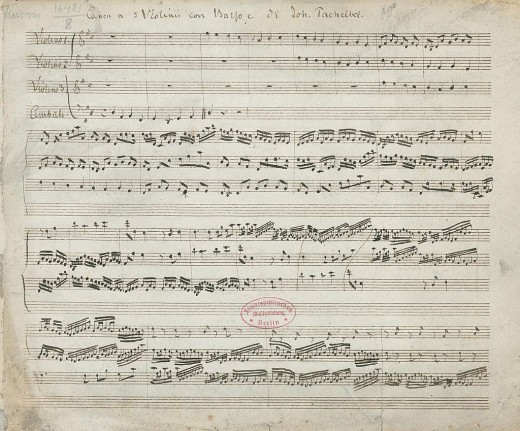 16481
8
Canon a 3 Violinis con Basso c. di Joh. Pachelbel.
Violino 1.
Violino 2
Violino 3
Cembalo
Staatsbibliothek
Berlin